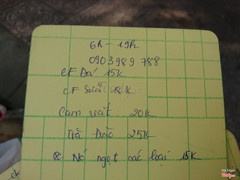 6h - 19h
0903989788
CF Đá 15K
CF Sữa 18K
Cam vắt 20K
Trà Đào 25K
Nc ngọt các loại 15K